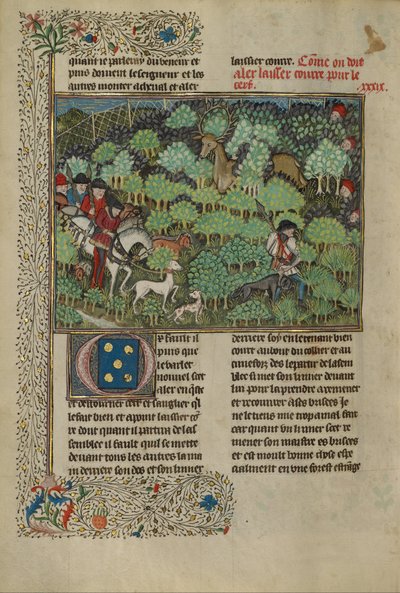 quant je parleray du veneur et
puis doivent le seigneur et les
autres monter a cheval et aler
laissier courre. Come on doit
aler laissier courre pour le
cerf. .xxxix.
Et puis que
le varlet
nouvel scet
aler en queste
et destourner cerf et sanglier qͥl
le fait bien et apoint laissier cor͂
re dont quant il partira de las
semblee il fault quil se mette
devant tous les autres sa mai
in derriere son dos et son limier
derriere soy en le tenant bien
court au bout du collier et au
des le partir de lasem
blee si met son limier devant
lun pour la prendre a revenir
et recouvrer a ses brisees Je
ne le tiens mie trop a mal fait
car quant un limier scet re
mener son maistre es brisees
et est moult bonne chose espe
cialment en une forest estrãge